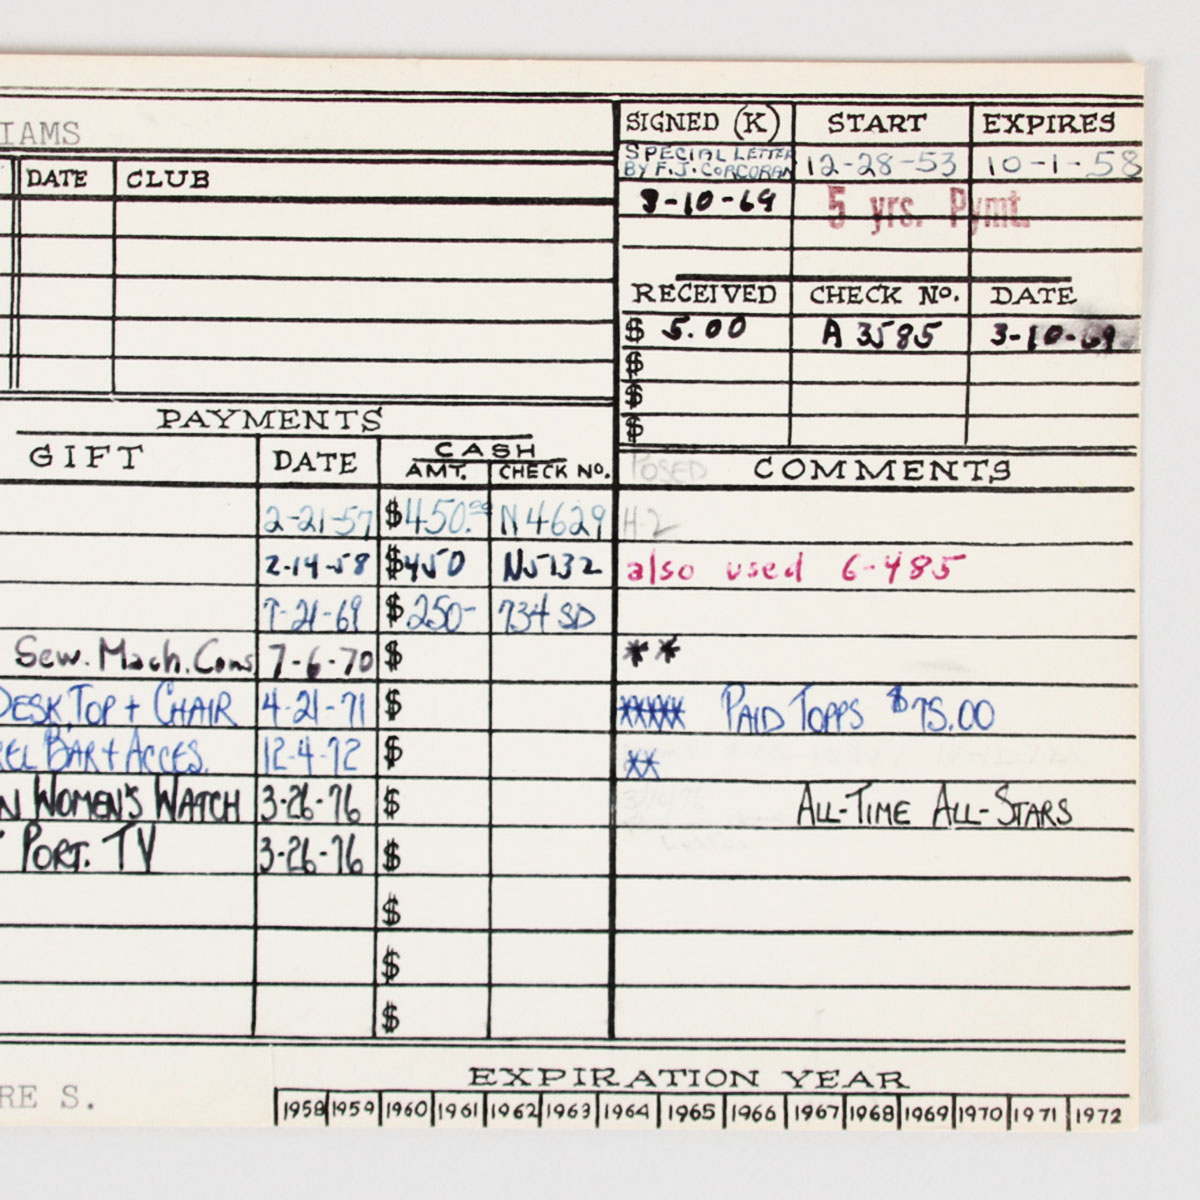 IAMS
SIGNED (K) START EXPIRES
SPECIAL LETTER
BY F.J. CORCORAN 12-28-53 10-1-58
DATE CLUB
3-10-69 5 yrs. Pymt.
RECEIVED CHECK No. DATE
$ 5.00 A 3585 3-10-69
$
$
$
PAYMENTS
GIFT DATE CASH
AMT. CHECK No.
POSED COMMENTS
2-21-57 $450.00 N4629 H2
2-14-58 $450 N5132 also used 6-485
7-21-69 $250- 734 SD
Sew. Mach. Cons 7-6-70 $ **
DESK, TOP + CHAIR 4-21-71 $ ***** PAID TOPPS $75.00
REL BAR + ACCES. 12-4-72 $ **
N WOMEN'S WATCH 3-26-76 $ ALL-TIME ALL-STARS
PORT. TV 3-26-76 $
$
$
$
EXPIRATION YEAR
RE S.
1958 1959 1960 1961 1962 1963 1964 1965 1966 1967 1968 1969 1970 1971 1972